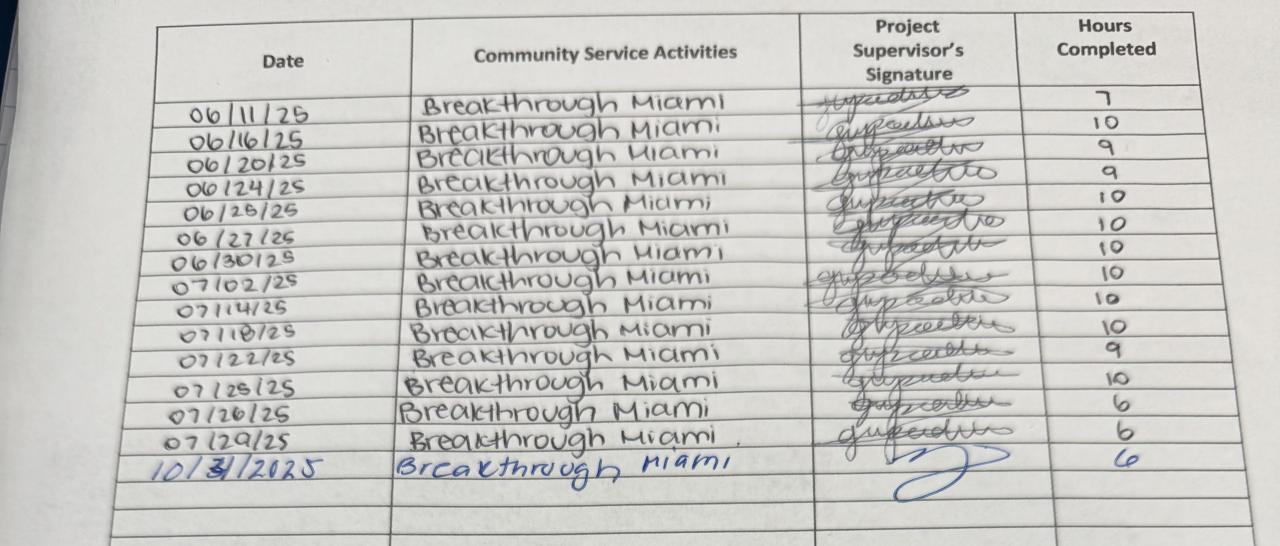 Date Community Service Activities Project Supervisor's Signature Hours Completed
06/11/25 Breakthrough Miami 7
06/16/25 Breakthrough Miami 10
06/20/25 Breakthrough Miami 9
06/24/25 Breakthrough Miami 9
06/25/25 Breakthrough Miami 10
06/27/25 Breakthrough Miami 10
06/30/25 Breakthrough Miami 10
07/02/25 Breakthrough Miami 10
07/14/25 Breakthrough Miami 10
07/18/25 Breakthrough Miami 10
07/22/25 Breakthrough Miami 9
07/25/25 Breakthrough Miami 10
07/26/25 Breakthrough Miami 6
07/29/25 Breakthrough Miami 6
10/31/2025 Breakthrough Miami 6